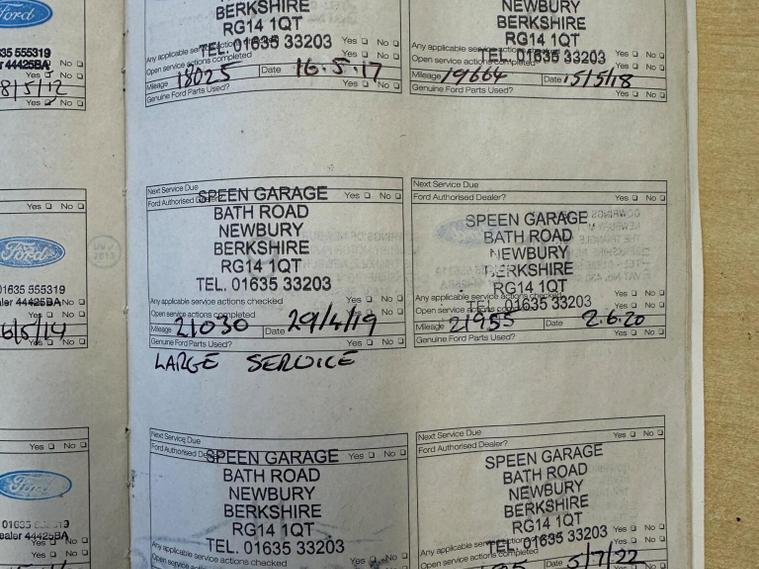 Ford
35 555319
44425BA
No
Yes No
8/5/12
Yes No
BERKSHIRE
RG14 1QT
TEL. 01635 33203
Yes No
Any applicable service actions checked
Open service actions completed
Yes No
Mileage 18025 Date 16.5.17
Genuine Ford Parts Used? Yes No
NEWBURY
BERKSHIRE
RG14 1QT
TEL. 01635 33203
Yes No
Any applicable service actions checked
Open service actions completed
Yes No
Mileage 19664 Date 15/5/18
Genuine Ford Parts Used? Yes No
Yes No
Ford
01635 555319
44425BA No
Yes No
6/5/14
Yes No
Next Service Due
Ford Authorised Dealer? Yes No
SPEEN GARAGE
BATH ROAD
NEWBURY
BERKSHIRE
RG14 1QT
TEL. 01635 33203
Any applicable service actions checked Yes No
Open service actions completed Yes No
Mileage 21030 Date 29/4/19
Genuine Ford Parts Used? Yes No
LARGE SERVICE
Next Service Due
Ford Authorised Dealer? Yes No
SPEEN GARAGE
BATH ROAD
NEWBURY
BERKSHIRE
RG14 1QT
TEL. 01635 33203
Any applicable service actions checked Yes No
Open service actions completed Yes No
Mileage 21955 Date 2.6.20
Genuine Ford Parts Used? Yes No
Yes No
Ford
01635
44425BA
Yes No
Yes No
Next Service Due
Ford Authorised Dealer? Yes No
SPEEN GARAGE
BATH ROAD
NEWBURY
BERKSHIRE
RG14 1QT
TEL. 01635 33203
Any applicable service actions checked Yes No
Open service actions completed Yes No
Next Service Due
Ford Authorised Dealer? Yes No
SPEEN GARAGE
BATH ROAD
NEWBURY
BERKSHIRE
RG14 1QT
TEL. 01635 33203
Any applicable service actions checked Yes No
Open service actions completed Yes No
Date 5/7/22